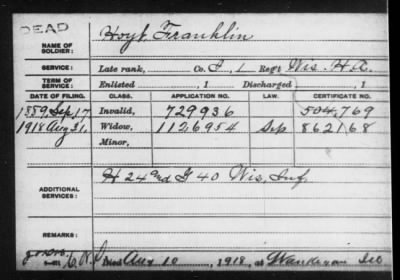 DEAD
NAME OF SOLDIER: Hoyt, Franklin
SERVICE: Late rank, Co. I, 1 Reg't Wis. H.A.
TERM OF SERVICE: Enlisted , 1 Discharged , 1
DATE OF FILING. CLASS. APPLICATION NO. LAW. CERTIFICATE NO.
1889 Sep 17 Invalid, 729936 504,769
1918 Aug 31, Widow, 1126954 Sep 862168
Minor,
ADDITIONAL SERVICES: H 24 and G 40 Wis. Inf.
REMARKS:
Died Aug 10, 1918, at